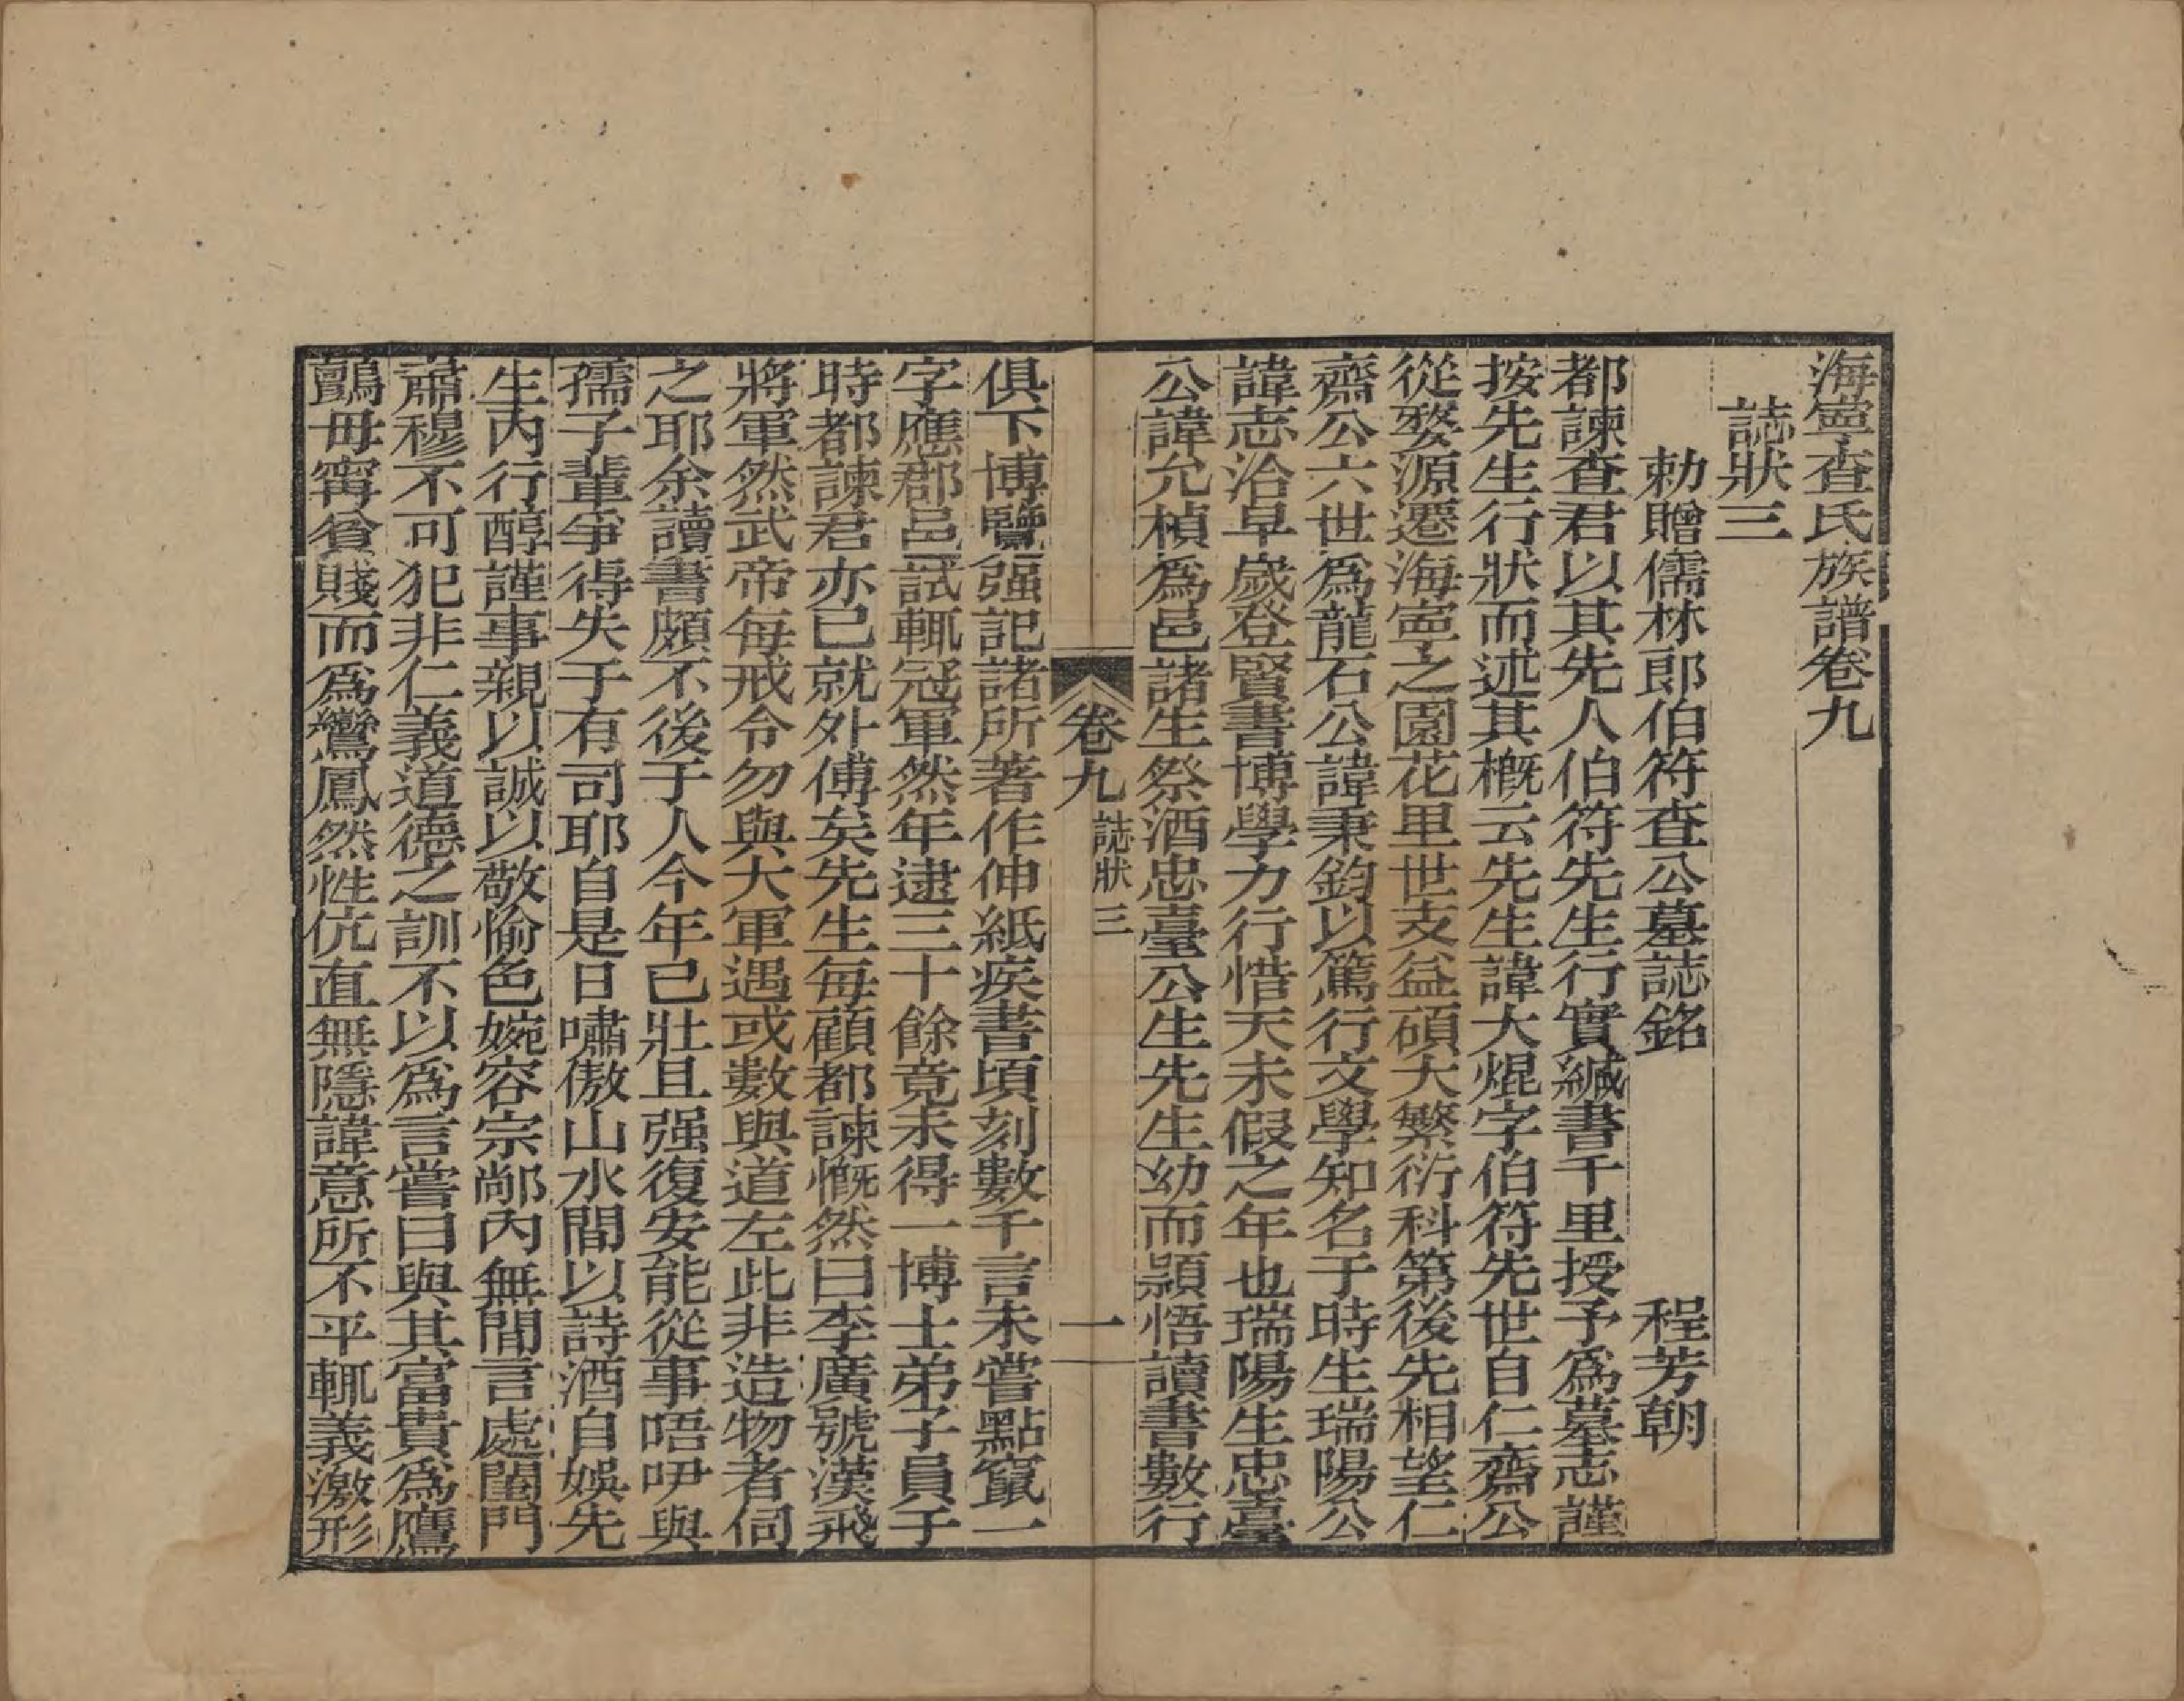 海寧查氏族譜卷九
誌狀三
勅贈儒林郎伯符查公墓誌銘 程芳朝
都諫查君以其先人伯符先生行實緘書千里授予爲墓志謹
按先生行狀而述其概云先生諱大焜字伯符先世自仁齋公
從婺源遷海寧之園花里世支益碩大繁衍科第後先相望仁
齋公六世爲龍石公諱秉鈞以篤行文學知名于時生瑞陽公
諱志洽早歲登賢書博學力行惜天未假之年也瑞陽生忠臺
公諱允楨爲邑諸生祭酒忠臺公生先生幼而頴悟讀書數行
卷九 誌狀三 一
俱下博覽强記諸所著作伸紙疾書頃刻數千言未嘗點竄一
字應郡邑試輒冠軍然年逮三十餘竟未得一博士弟子員于
時都諫君亦已就外傅矣先生每顧都諫慨然曰李廣號漢飛
將軍然武帝每戒令勿與大軍遇或數與道左此非造物者伺
之耶余讀書頗不後于人今年已壯且强復安能從事唔咿與
孺子輩爭得失于有司耶自是日嘯傲山水間以詩酒自娛先
生內行醇謹事親以誠以敬愉色婉容宗鄰內無間言處閨門
肅穆不可犯非仁義道德之訓不以爲言嘗曰與其富貴爲鷹
鸇毋寗貧賤而爲鸞鳳然性伉直無隱諱意所不平輒義激形